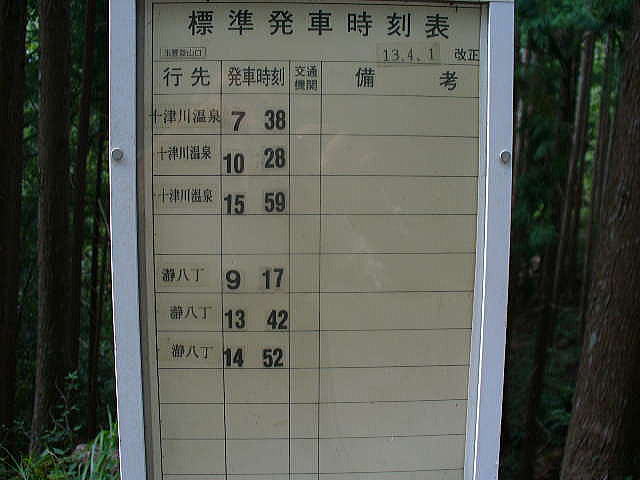 標準発車時刻表
玉置登山口
13.4.1 改正
行先 発車時刻 交通機関 備考
十津川温泉 7 38
十津川温泉 10 28
十津川温泉 15 59
瀞八丁 9 17
瀞八丁 13 42
瀞八丁 14 52